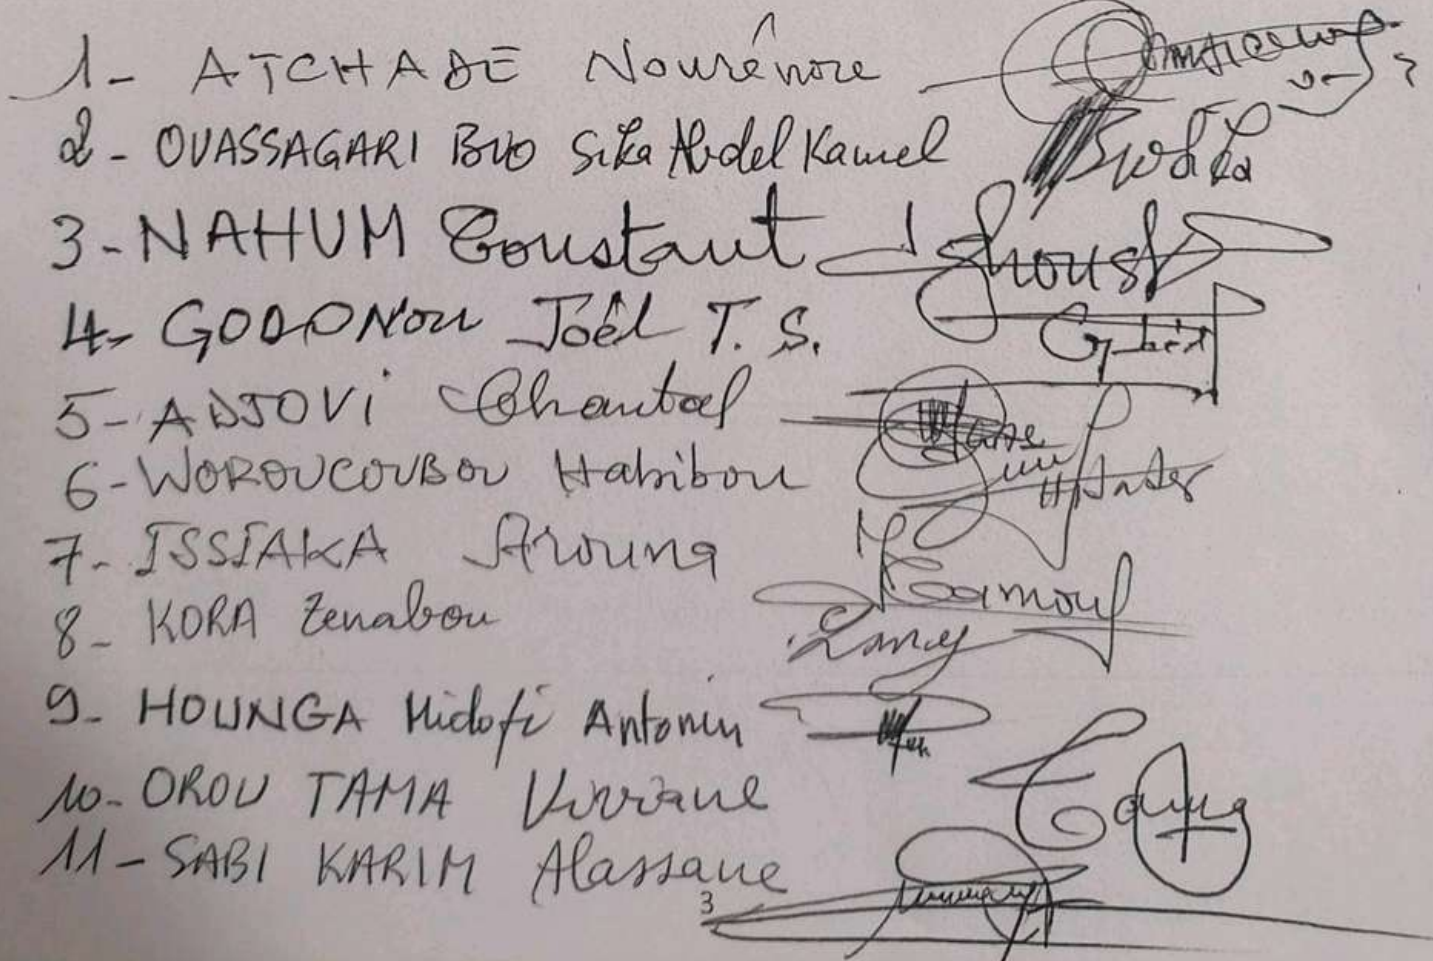 1- ATCHADE Nourénou
2- OUASSAGARI BIO Sika Abdel Kamel
3- NAHUM Constant
4- GODONOU Joël T. S.
5- ADJOVI Chantal
6- WOROUCOUBOU Habibou
7- ISSIAKA Arouna
8- KORA Zenabou
9- HOUNGA Midofi Antonin
10- OROU TAMA Viviane
11- SABI KARIM Alassane
3